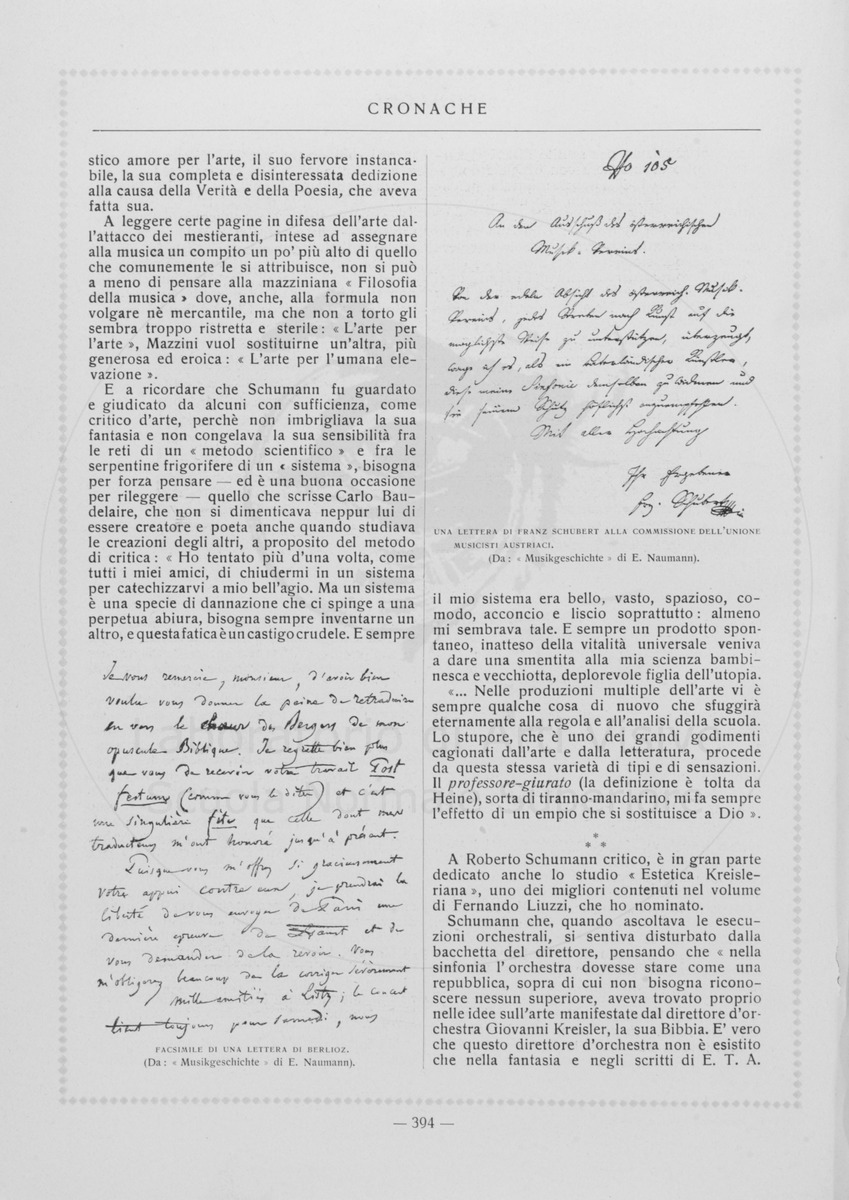 CRONACHE
stico amore per l'arte, il suo fervore instanca-
bile, la sua completa e disinteressata dedizione
alla causa della Verità e della Poesia, che aveva
fatta sua.
A leggere certe pagine in difesa dell'arte dal-
l'attacco dei mestieranti, intese ad assegnare
alla musica un compito un po' più alto di quello
che comunemente le si attribuisce, non si può
a meno di pensare alla mazziniana « Filosofia
della musica » dove, anche, alla formula non
volgare nè mercantile, ma che non a torto gli
sembra troppo ristretta e sterile : « L'arte per
l'arte », Mazzini vuol sostituirne un'altra, più
generosa ed eroica : « L'arte per l'umana ele-
vazione ».
E a ricordare che Schumann fu guardato
e giudicato da alcuni con sufficienza, come
critico d'arte, perchè non imbrigliava la sua
fantasia e non congelava la sua sensibilità fra
le reti di un « metodo scientifico » e fra le
serpentine frigorifere di un « sistema », bisogna
per forza pensare — ed è una buona occasione
per rileggere — quello che scrisse Carlo Bau-
delaire, che non si dimenticava neppur lui di
essere creatore e poeta anche quando studiava
le creazioni degli altri, a proposito del metodo
di critica : « Ho tentato più d'una volta, come
tutti i miei amici, di chiudermi in un sistema
per catechizzarvi a mio bell'agio. Ma un sistema
è una specie di dannazione che ci spinge a una
perpetua abiura, bisogna sempre inventarne un
altro, e questa fatica è un castigo crudele. E sempre
Je vous remercie, monsieur, d'avoir bien
voulu vous donner la peine de retraduire
en vers le chœur des Bergers de mon
opuscule Biblique. Je regrette bien plus
que vous de recevoir votre travail Post
festum (comme vous le dites) et c'est
une singulière fête que celle dont mes
traducteurs m'ont honoré jusqu'à présent.
Puisque vous m'offrez si gracieusement
votre appui contre eux, je prendrai la
liberté de vous envoyer de Paris une
dernière épreuve du Faust et de
vous demander de la revoir. Vous
m'obligerez beaucoup de la corriger sévèrement
mille amitiés à Listz ; le concert
tient toujours pour samedi, nous
FACSIMILE DI UNA LETTERA DI BERLIOZ.
(Da : « Musikgeschichte » di E. Naumann).
No 105
An den Ausschuß des österreichischen
Musik-Vereins.
Von der edeln Absicht des österreich. Musik-
Vereins, jedes Streben nach Kunst auf die
möglichste Weise zu unterstützen, überzeugt,
wage ich es, als ein vaterländischer Künstler,
diese meine Sinfonie demselben zu widmen und
sie seinem Schutz höflichst anzuempfehlen.
Mit aller Hochachtung
Ihr Ergebener
Frz. Schubert
UNA LETTERA DI FRANZ SCHUBERT ALLA COMMISSIONE DELL'UNIONE
MUSICISTI AUSTRIACI.
(Da : « Musikgeschichte » di E. Naumann).
il mio sistema era bello, vasto, spazioso, co-
modo, acconcio e liscio soprattutto : almeno
mi sembrava tale. E sempre un prodotto spon-
taneo, inatteso della vitalità universale veniva
a dare una smentita alla mia scienza bambi-
nesca e vecchiotta, deplorevole figlia dell'utopia.
«... Nelle produzioni multiple dell'arte vi è
sempre qualche cosa di nuovo che sfuggirà
eternamente alla regola e all'analisi della scuola.
Lo stupore, che è uno dei grandi godimenti
cagionati dall'arte e dalla letteratura, procede
da questa stessa varietà di tipi e di sensazioni.
Il professore-giurato (la definizione è tolta da
Heine), sorta di tiranno-mandarino, mi fa sempre
l'effetto di un empio che si sostituisce a Dio ».
*
* *
A Roberto Schumann critico, è in gran parte
dedicato anche lo studio « Estetica Kreisle-
riana », uno dei migliori contenuti nel volume
di Fernando Liuzzi, che ho nominato.
Schumann che, quando ascoltava le esecu-
zioni orchestrali, si sentiva disturbato dalla
bacchetta del direttore, pensando che « nella
sinfonia l'orchestra dovesse stare come una
repubblica, sopra di cui non bisogna ricono-
scere nessun superiore, aveva trovato proprio
nelle idee sull'arte manifestate dal direttore d'or-
chestra Giovanni Kreisler, la sua Bibbia. E' vero
che questo direttore d'orchestra non è esistito
che nella fantasia e negli scritti di E. T. A.
— 394 —